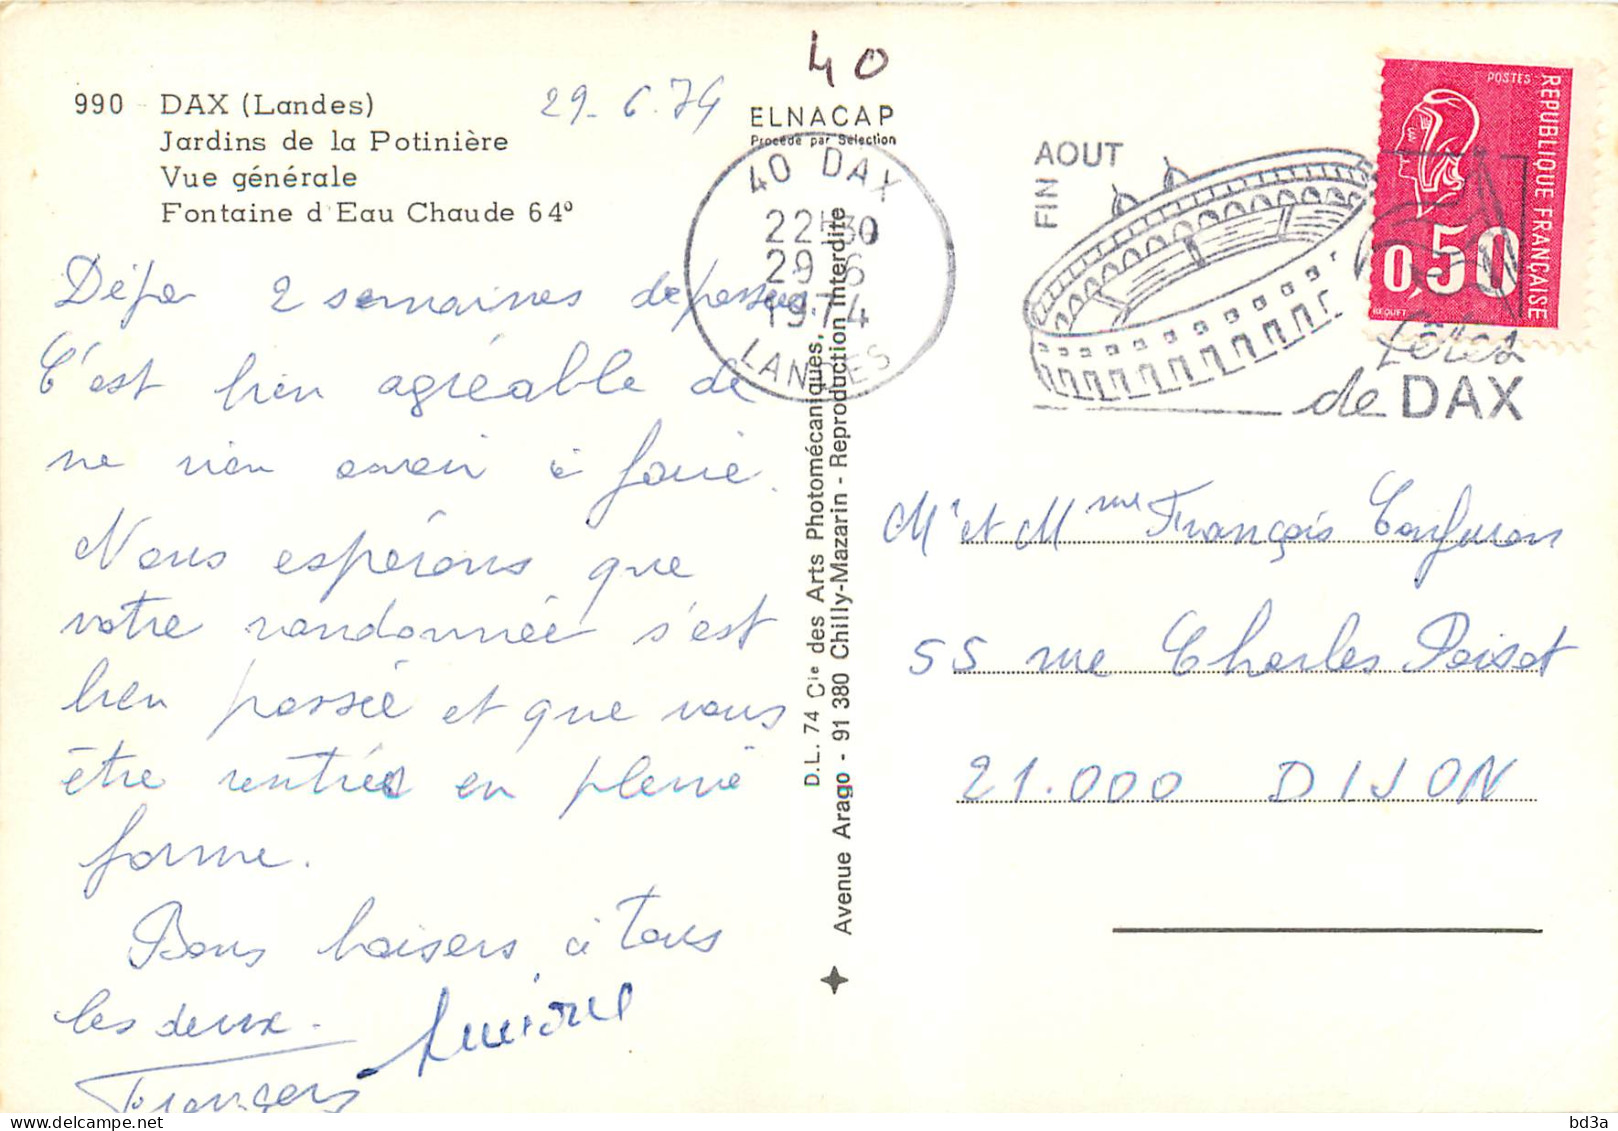 40
990 DAX (Landes)
Jardins de la Potinière
Vue générale
Fontaine d'Eau Chaude 64°
29-6.74
ELNACAP
Procédé par Sélection
40 DAX
22H30
29-6
1974
LANDES
FIN AOUT
fêtes
de DAX
POSTES
REPUBLIQUE FRANÇAISE
0,50
BEQUET
Déjà 2 semaines de passées.
C'est bien agréable de
ne rien avoir à faire.
Nous espérons que
votre randonnée s'est
bien passée et que vous
être rentrés en pleine
forme.
Bons baisers à tous
les deux.
D.L. 74 Cie des Arts Photomécaniques,
Avenue Arago - 91 380 Chilly-Mazarin - Reproduction Interdite
Mr et Mme François
55 rue Charles Poisot
21.000 DIJON
bd3a